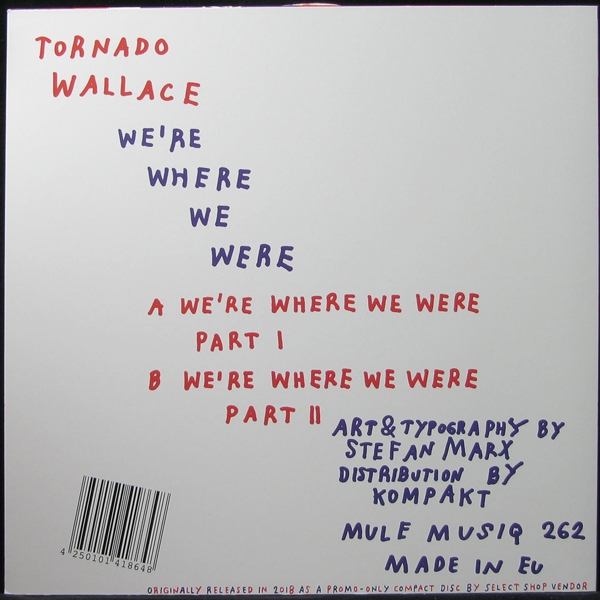 TORNADO
WALLACE
WE'RE
WHERE
WE
WERE
A WE'RE WHERE WE WERE
PART I
B WE'RE WHERE WE WERE
PART II
ART & TYPOGRAPHY BY
STEFAN MARX
DISTRIBUTION BY
KOMPAKT
MULE MUSIQ 262
MADE IN EU
4 250101 418648
ORIGINALLY RELEASED IN 2018 AS A PROMO-ONLY COMPACT DISC BY SELECT SHOP VENDOR